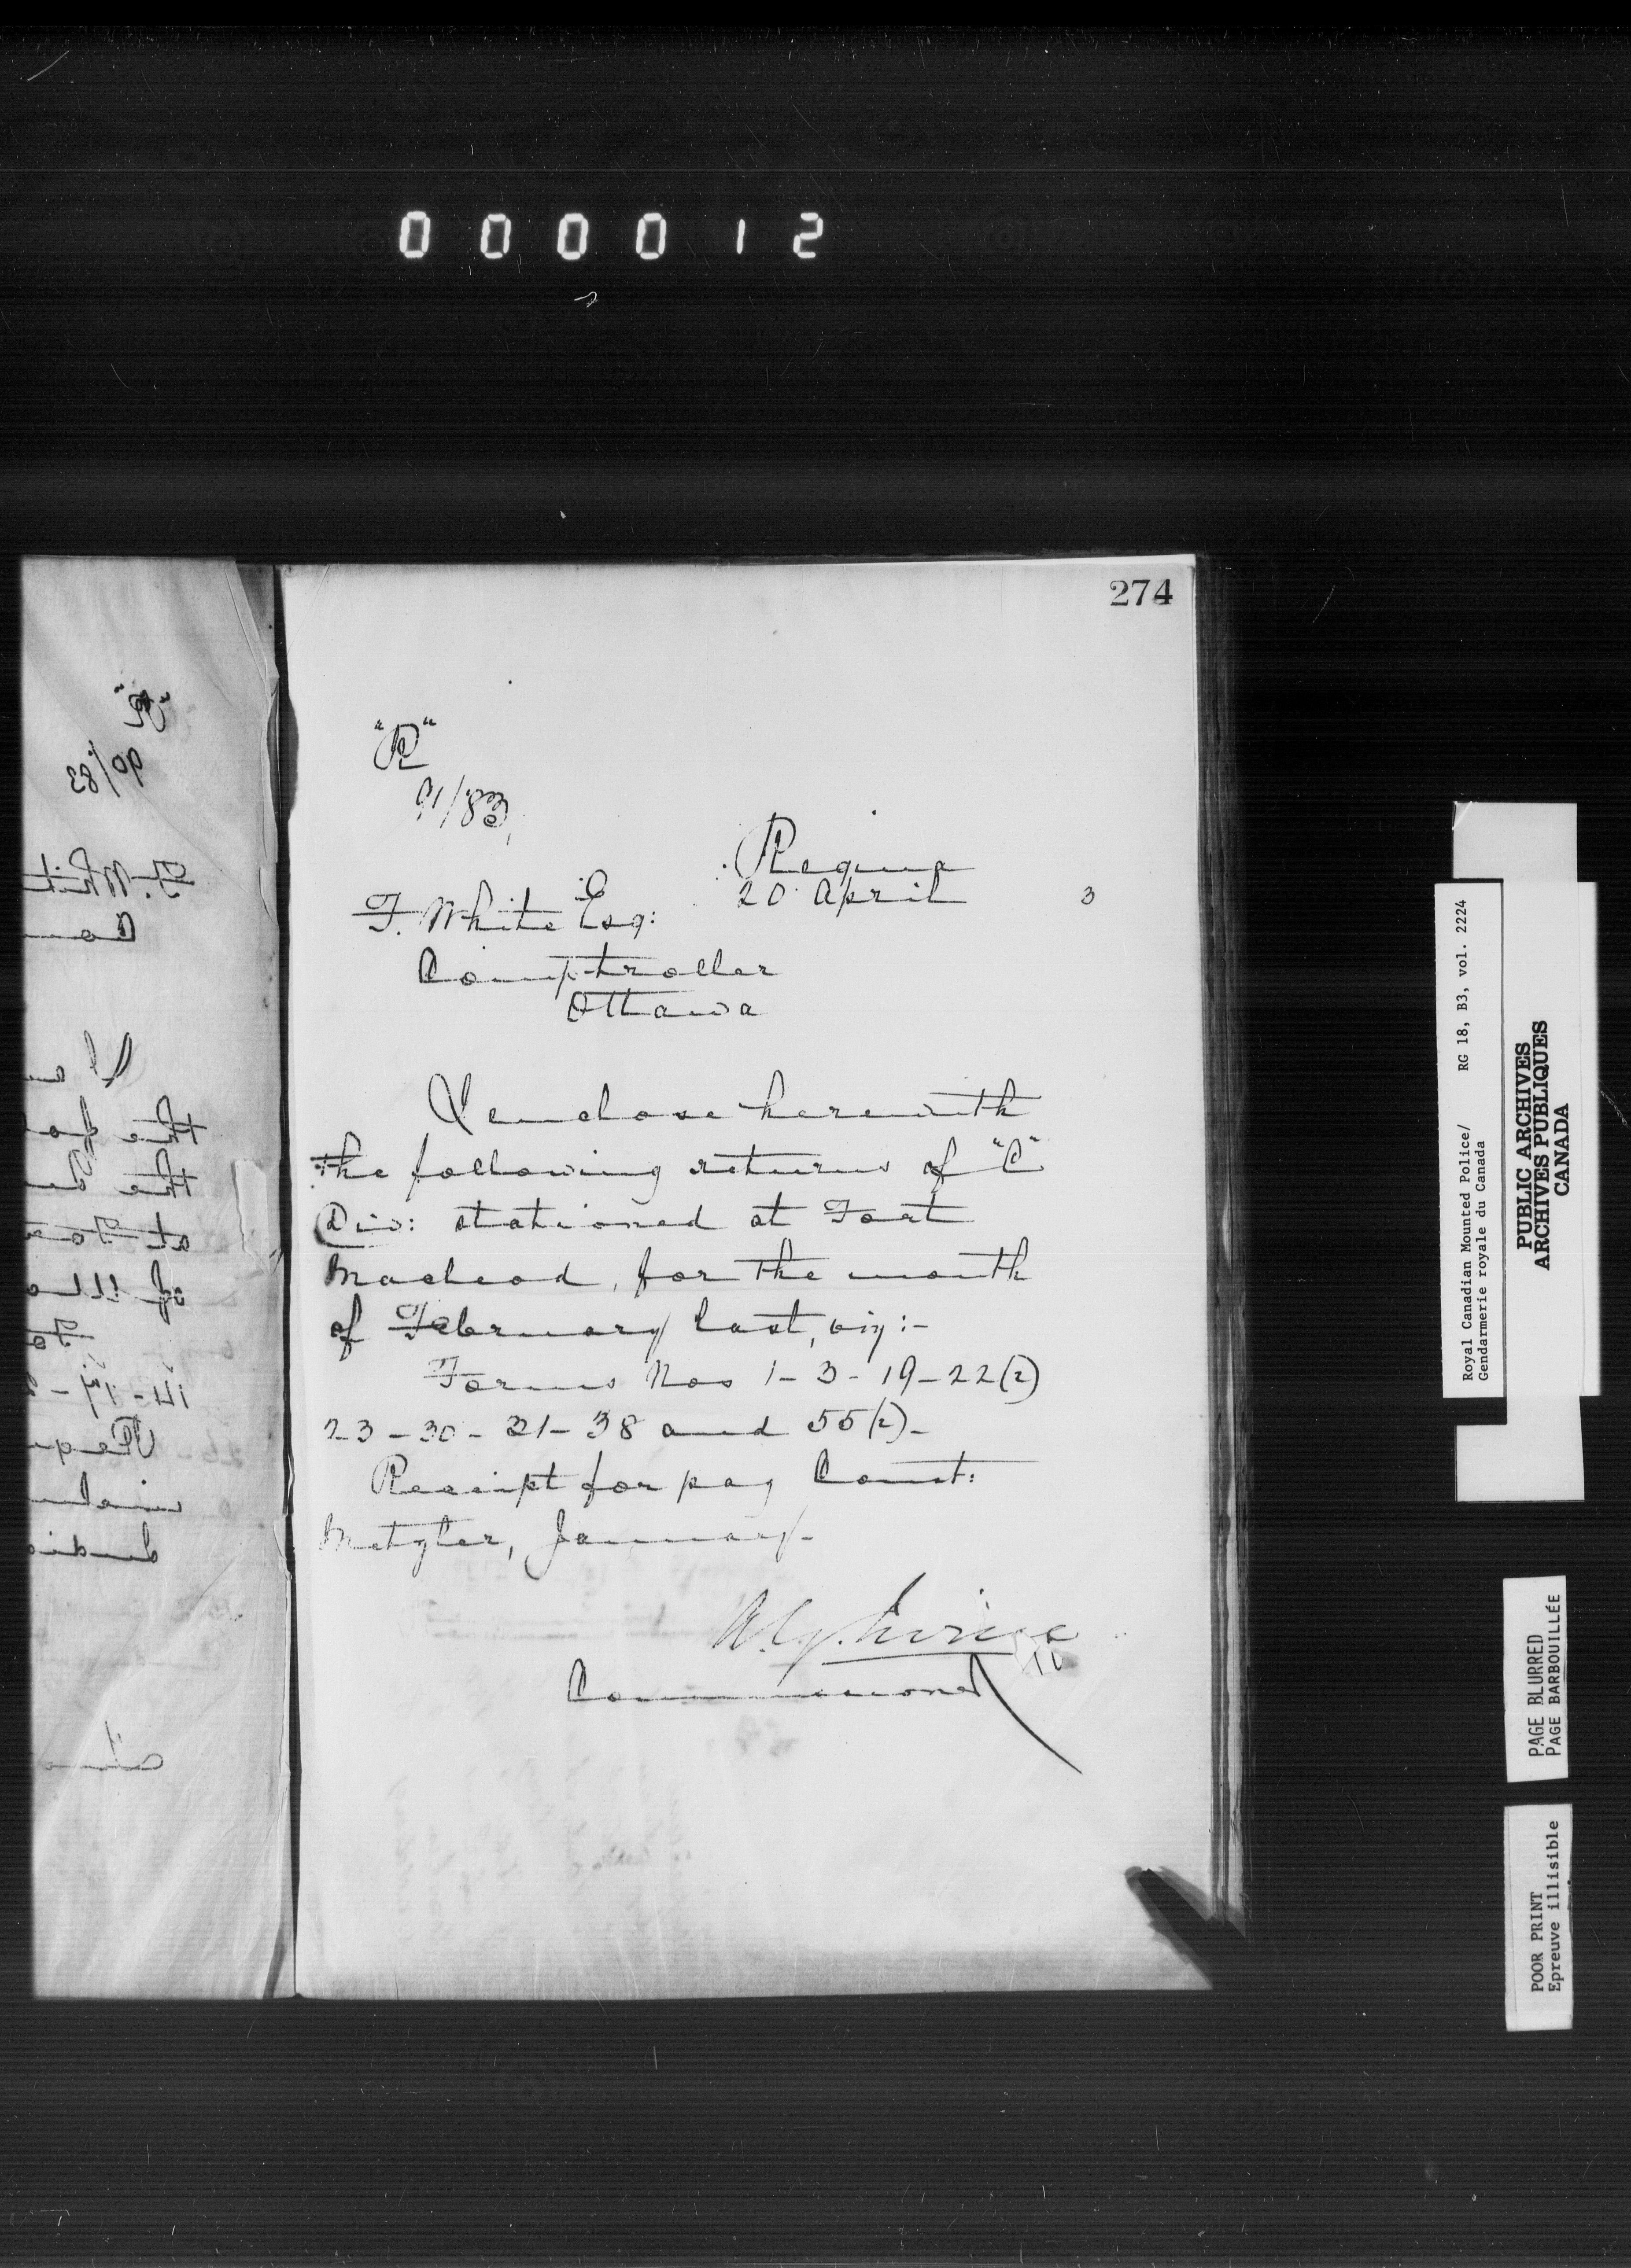 000012
274
"R"
91/83
Regina
20 April 3
F. White Esq:
Comptroller
Ottawa
I enclose herewith
the following returns of "C"
Div: stationed at Fort
Macleod, for the month
of February last, viz:-
Forms Nos 1-3-19-22(2)
23-30-31-38 and 55(2)-
Receipt for pay Const:
Metzler, January-
A.G. Irvine
Commissioner
Royal Canadian Mounted Police/ RG 18, B3, vol. 2224
Gendarmerie royale du Canada
PUBLIC ARCHIVES
ARCHIVES PUBLIQUES
CANADA
PAGE BLURRED
PAGE BARBOUILLÉE
POOR PRINT
Epreuve illisible
"R"
90/83
F. Whit
Com